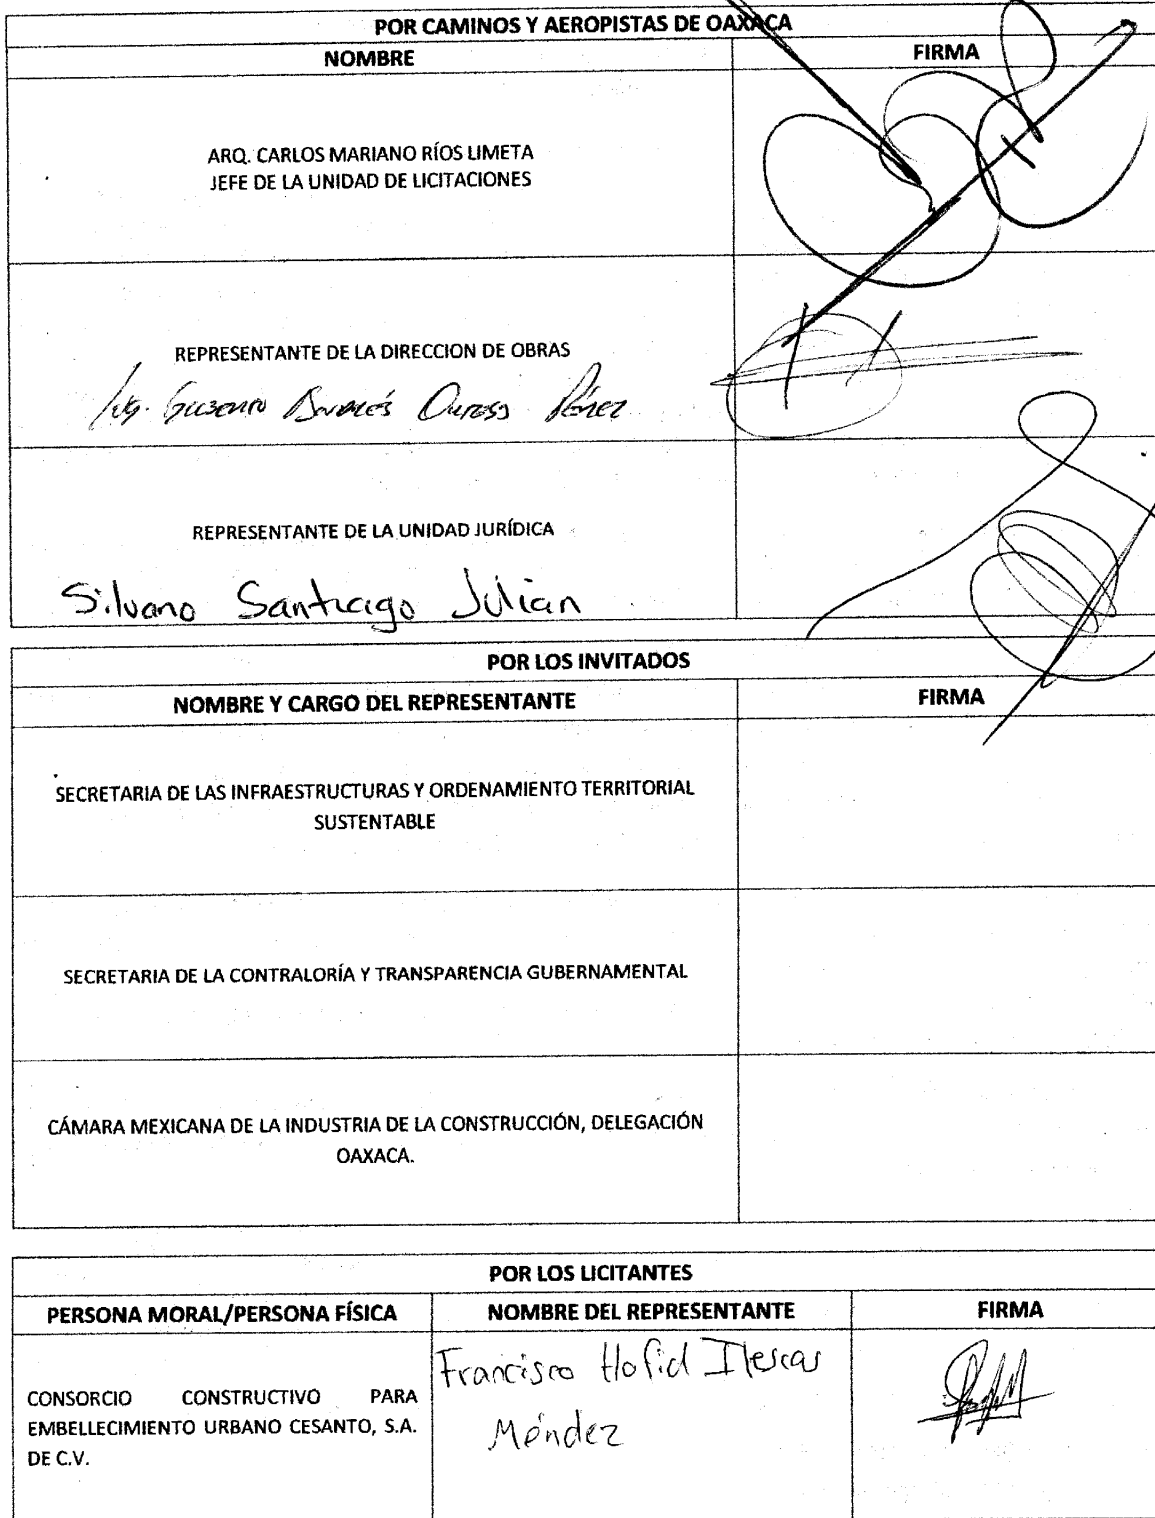 POR CAMINOS Y AEROPISTAS DE OAXACA
NOMBRE FIRMA
ARQ. CARLOS MARIANO RÍOS LIMETA
JEFE DE LA UNIDAD DE LICITACIONES
REPRESENTANTE DE LA DIRECCION DE OBRAS
Ing. Andrés Pérez
REPRESENTANTE DE LA UNIDAD JURÍDICA
Silvano Santiago Julian
POR LOS INVITADOS
NOMBRE Y CARGO DEL REPRESENTANTE FIRMA
SECRETARIA DE LAS INFRAESTRUCTURAS Y ORDENAMIENTO TERRITORIAL
SUSTENTABLE
SECRETARIA DE LA CONTRALORÍA Y TRANSPARENCIA GUBERNAMENTAL
CÁMARA MEXICANA DE LA INDUSTRIA DE LA CONSTRUCCIÓN, DELEGACIÓN
OAXACA.
POR LOS LICITANTES
PERSONA MORAL/PERSONA FÍSICA NOMBRE DEL REPRESENTANTE FIRMA
CONSORCIO CONSTRUCTIVO PARA
EMBELLECIMIENTO URBANO CESANTO, S.A.
DE C.V.
Francisco Hofid Ilescas
Méndez